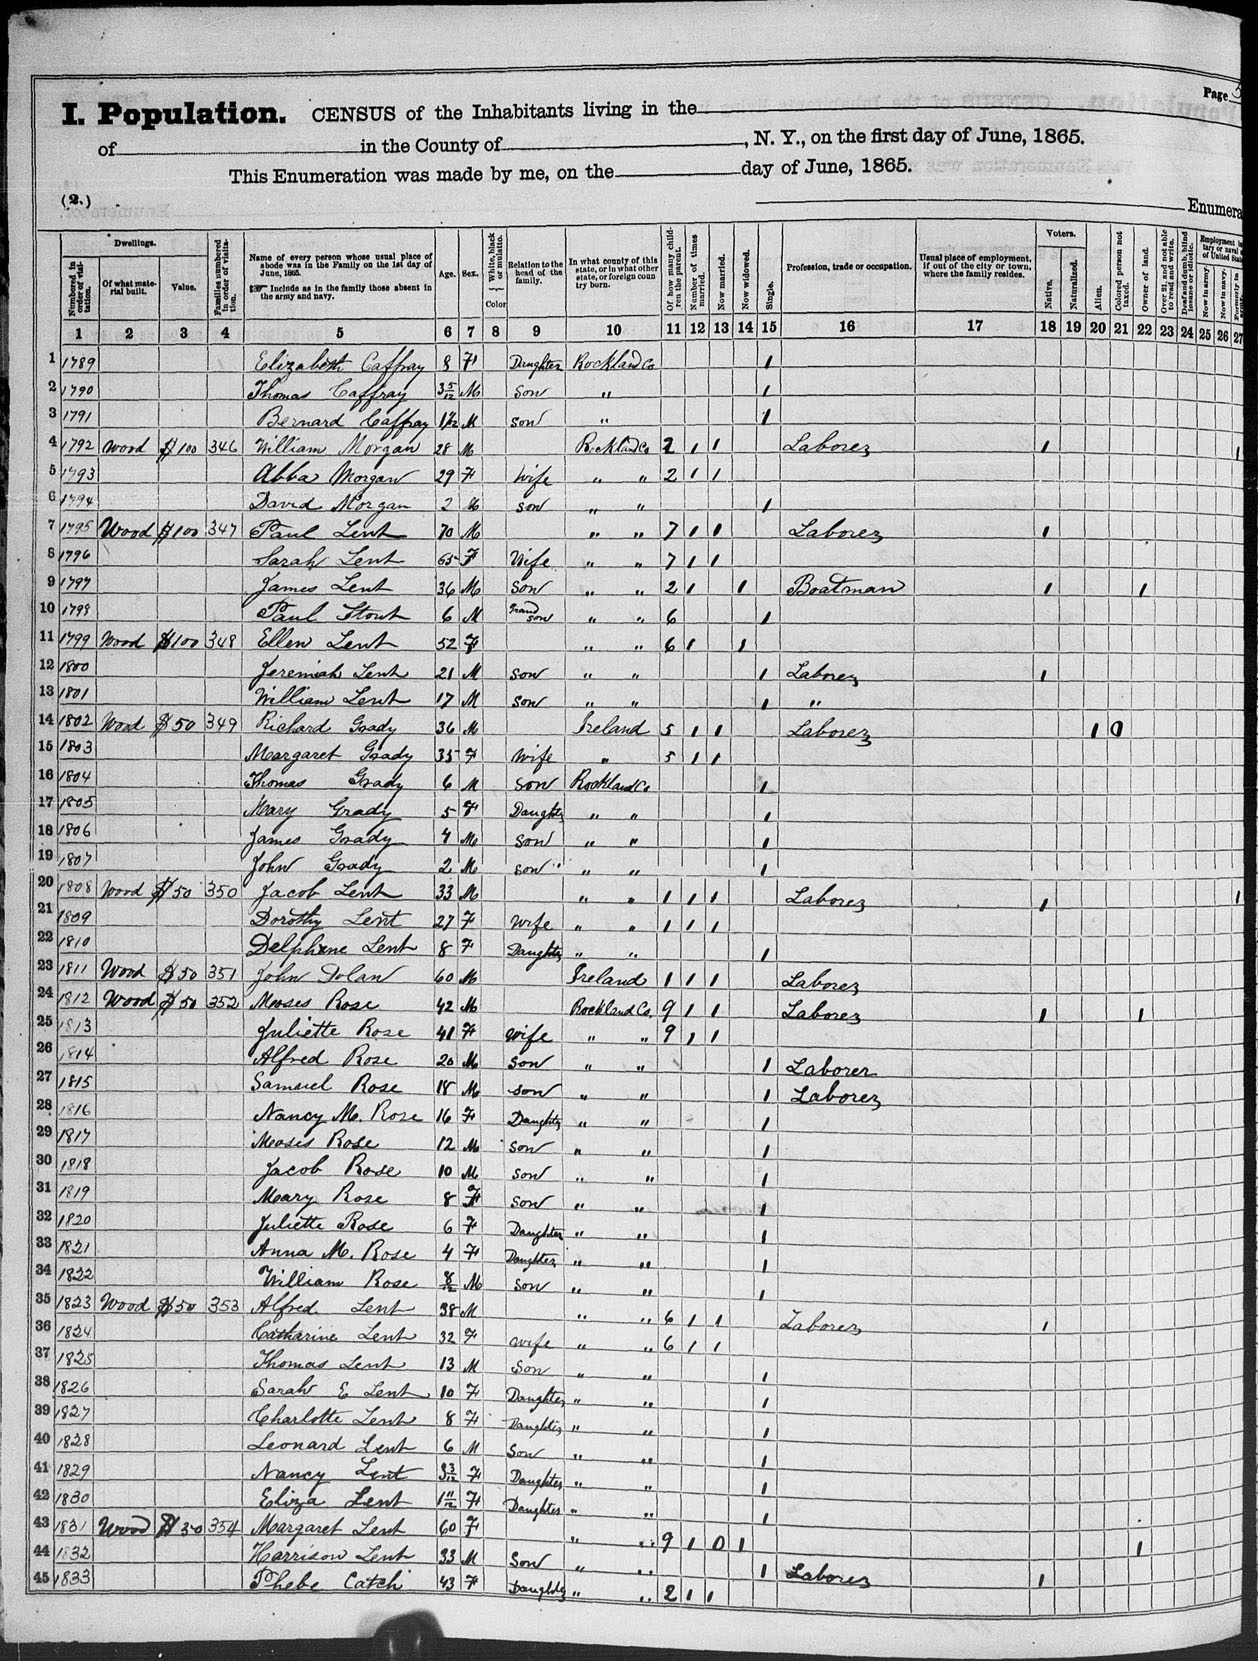 Page
I. Population. CENSUS of the Inhabitants living in the
of in the County of , N. Y., on the first day of June, 1865.
This Enumeration was made by me, on the day of June, 1865.
(2.)
Enumera
Numbered in order of visitation.
Dwellings.
Of what material built.
Value.
Families numbered in order of visitation.
Name of every person whose usual place of abode was in the Family on the 1st day of June, 1865.
Include as in the family those absent in the army and navy.
Age.
Sex.
White, black or mulatto.
Color
Relation to the head of the family.
In what county of this state, or in what other state, or foreign country born.
Of how many children the parent.
Number of times married.
Now married.
Now widowed.
Single.
Profession, trade or occupation.
Usual place of employment, if out of the city or town, where the family resides.
Voters.
Native.
Naturalized.
Alien.
Colored person not taxed.
Owner of land.
Over 21, and not able to read and write.
Deaf and dumb, blind insane or idiotic.
Now in army.
Now in navy.
1 2 3 4 5 6 7 8 9 10 11 12 13 14 15 16 17 18 19 20 21 22 23 24 25 26 27
1 1789 Elizabeth Caffray 8 F Daughter Rockland Co 1
2 1790 Thomas Caffray 3 5/12 M Son " 1
3 1791 Bernard Caffray M Son " 1
4 1792 Wood $100 346 William Morgan 28 M Rockland Co 2 1 1 Laborer 1 1
5 1793 Abba Morgan 29 F Wife " " 2 1 1
6 1794 David Morgan 2 M Son " " 1
7 1795 Wood $100 347 Paul Lent 70 M " " 7 1 1 Laborer 1
8 1796 Sarah Lent 65 F Wife " " 7 1 1
9 1797 James Lent 36 M Son " " 2 1 1 Boatman 1 1
10 1798 Paul Stout 6 M Grand son " " 6 1
11 1799 Wood $100 348 Ellen Lent 52 F " " 6 1 1
12 1800 Jeremiah Lent 21 M Son " " 1 Laborer 1
13 1801 William Lent 17 M Son " " 1 "
14 1802 Wood $50 349 Richard Grady 36 M Ireland 5 1 1 Laborer 1 0
15 1803 Margaret Grady 35 F Wife " 5 1 1
16 1804 Thomas Grady 6 M Son Rockland Co 1
17 1805 Mary Grady 5 F Daughter " " 1
18 1806 James Grady 4 M Son " " 1
19 1807 John Grady 2 M Son " " 1
20 1808 Wood $50 350 Jacob Lent 33 M " " 1 1 1 Laborer 1 1
21 1809 Dorothy Lent 27 F Wife " " 1 1 1
22 1810 Delphine Lent 8 F Daughter " " 1
23 1811 Wood $50 351 John Dolan 60 M Ireland 1 1 1 Laborer
24 1812 Wood $50 352 Moses Rose 42 M Rockland Co. 9 1 1 Laborer 1 1
25 1813 Juliette Rose 41 F Wife " " 9 1 1
26 1814 Alfred Rose 20 M Son " " 1 Laborer
27 1815 Samuel Rose 18 M Son " " 1 Laborer
28 1816 Nancy M. Rose 16 F Daughter " " 1
29 1817 Moses Rose 12 M Son " " 1
30 1818 Jacob Rose 10 M Son " " 1
31 1819 Mary Rose 8 F Son " " 1
32 1820 Juliette Rose 6 F Daughter " " 1
33 1821 Anna M. Rose 4 F Daughter " " 1
34 1822 William Rose M Son " " 1
35 1823 Wood $50 353 Alfred Lent 38 M " " 6 1 1 Laborer 1
36 1824 Catharine Lent 32 F Wife " " 6 1 1
37 1825 Thomas Lent 13 M Son " " 1
38 1826 Sarah E Lent 10 F Daughter " " 1
39 1827 Charlotte Lent 8 F Daughter " " 1
40 1828 Leonard Lent 6 M Son " " 1
41 1829 Nancy Lent 3 3/12 F Daughter " " 1
42 1830 Eliza Lent 1 11/12 F Daughter " " 1
43 1831 Wood $30 354 Margaret Lent 60 F " " 9 1 0 1 1
44 1832 Harrison Lent 33 M Son " " 1 Laborer 1
45 1833 Phebe Catch 43 F Daughter " " 2 1 1